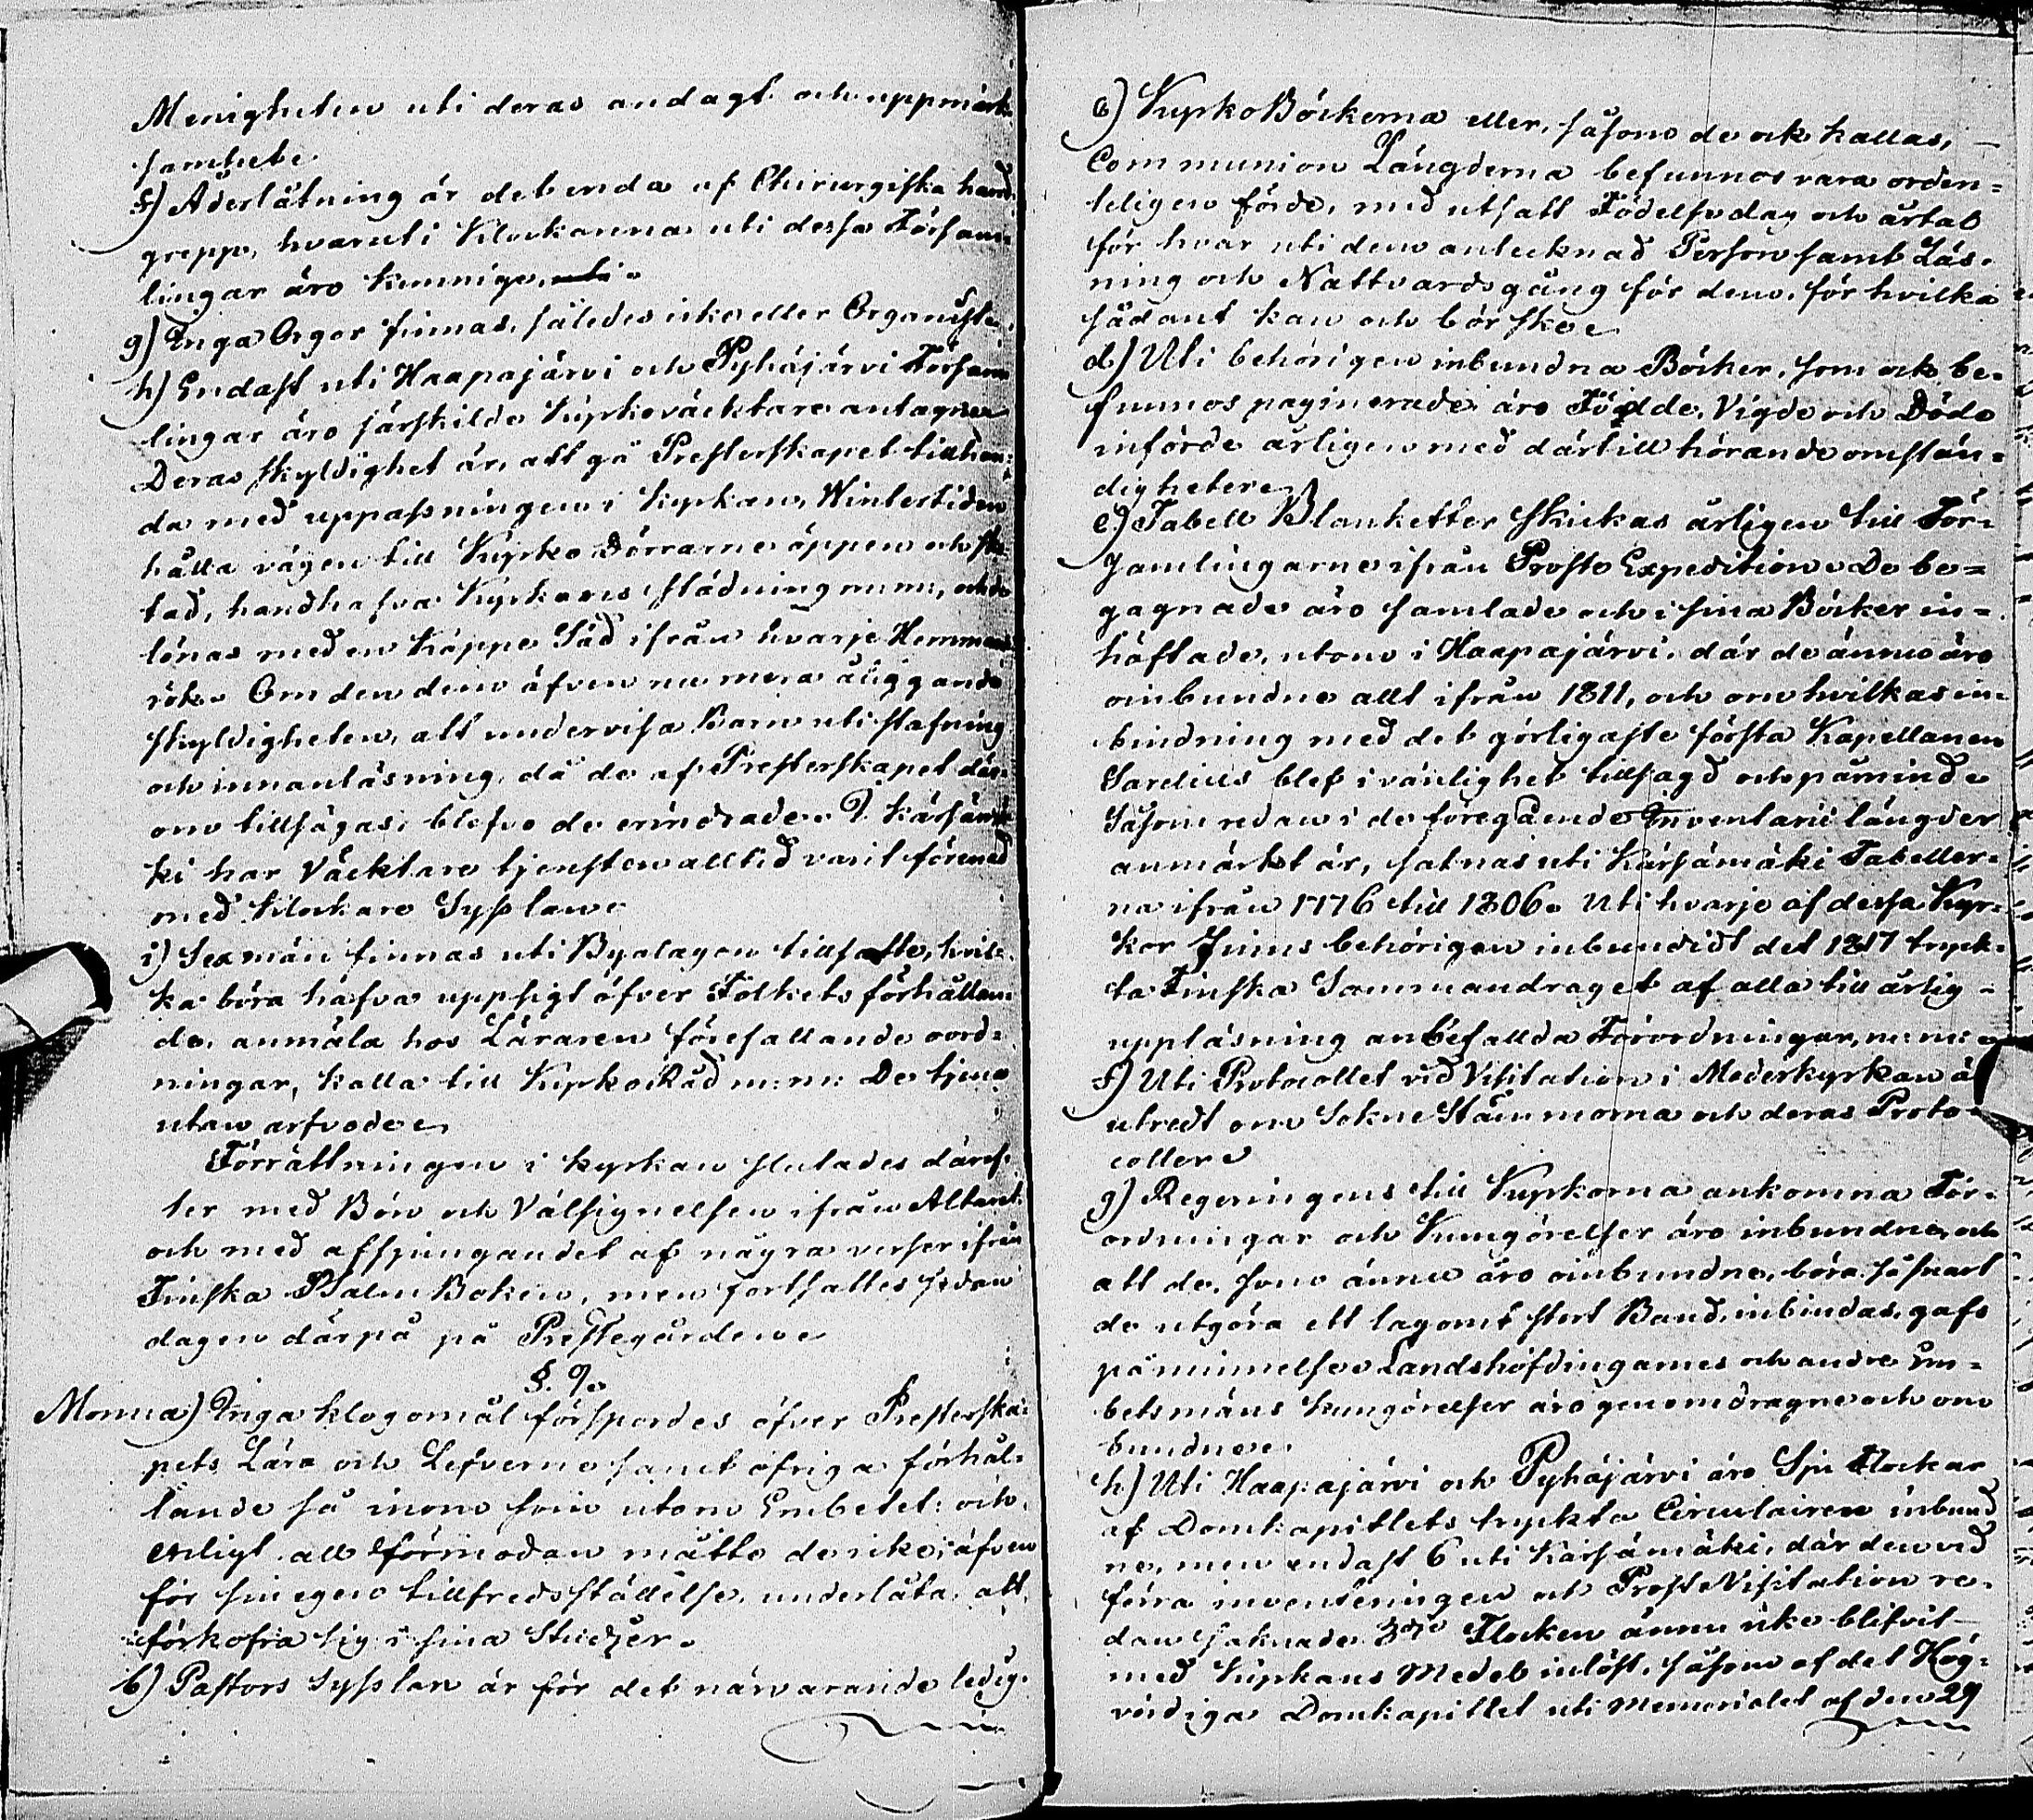 Menigheten uti deras andagt och uppmärk-
samhet.
f) Åderlåtning är det enda af Chirurgiska hand-
grepp, hvaruti Klockarena uti dessa Försam-
lingar äro kunnige.
g) Inga Orgor finnas, således icke eller Organist.
h) Endast uti Haapajärvi och Pyhäjärvi Försam-
lingar äro särskilde Kyrkoväcktare antagne
Deras skyldighet är, att gå Presterskapet tillhan-
da med uppassningen i kyrkan, Wintertiden
hålla vägen till Kyrko Dörrarne öppen och sko-
tad, handhafva Kyrkans städning m:m:, och de
lönas med en Kappe Säd ifrån hvarje Hemmans
rök. Om den dem äfven nu mera åliggande
skyldigheten, att undervisa Barn uti stafning
och innanläsning, då de af Presterskapet där-
om tillsägas, blefvo de erindrade. I Kärsämä-
ki har Väcktare tjensten alltid varit förenad
med Klockare Syslan.
i) Sexmän finnas uti Byalagen tillsatte, hvil-
ka böra hafva uppsigt öfver Folkets förhållan-
de, anmäla hos Läraren förefallande oord-
ningar, kalla till KyrkoRåd m:m: De tjena
utan arfvode.
Förrättningen i kyrkan slutades däref-
ter med Bön och Välsignelsen ifrån Altaret
och med afsjungandet af några verser ifrån
Finska PsalmBoken, men fortsattes sedan
dagen därpå på Prestegården.
§. 9.
Mom: a) Inga klagomål försportes öfver Presterska-
pets Lära och Lefverne samt öfriga förhål-
lande så inom som utom Embetet: och
enligt all förmodan måtte de icke, äfven
för sin egen tillfredsställelse, underlåta, att
förkofra sig i sina Studier.
b) Pastors Syslan är för det närvarande ledig.
c) KyrkoBöckerna eller, såsom de ock kallas,
Communion Längderna befunnos vara orden-
teligen förde, med utsatt Födelsedag och årtal
för hvar uti dem antecknad Person samt Läs-
ning och Nattvardsgång för dem, för hvilka
sådant kan och bör ske.
d) Uti behörigen inbundna Böcker, som ock be-
funnos paginerade äro Födde, Vigde och Döde
införde årligen med därtill hörande omstän-
digheter.
e) Tabell Blanketter skickas årligen till För-
samlingarne ifrån Proste Expedition. De be-
gagnade äro samlade och i sina Böcker in-
häftade, utom i Haapajärvi, där de ännu äro
oinbundne allt ifrån 1811, och om hvilkas in-
bindning med det görligaste första Kapellanen
Sardius blef i vänlighet tillsagd och påmind.
Såsom redan i de föregående Inventarii längder
anmärkt är, saknas uti Kärsämäki Tabeller-
na ifrån 1776 till 1806. Uti hvarje af dessa Kyr-
kor finns behörigen inbundidt det 1817 tryck-
ta Finska Sammandraget af alla till årlig
uppläsning anbefallda Förordningar, m: m:
f) Uti Protocollet vid Visitation i Moderkyrkan är
utredt om SockneStämmorna och deras Proto-
coller.
g) Regeringens till Kyrkorna ankomna För-
ordningar och Kungörelser äro inbundne, och
att de, som ännu äro oinbundne, böra så snart
de utgöra ett lagomt stort Band, inbindas, gafs
påminnelse. Landshöfdingarnes och andre Em-
betsmäns kungörelser äro genomdragne och om
bundne.
h) Uti Haapajärvi och Pyhäjärvi äro Sju Flockar
af Domkapitlets tryckta Circulairer inbund-
ne, men endast 6 uti Kärsämäki, där den vid
förra inventeringen och ProsteVisitation re-
dan saknade 3dje Flocken ännu icke blifvit
med Kyrkans Medel inlöst, såsom af det Hög-
vördiga Domkapitlet uti Memorialet af den 29